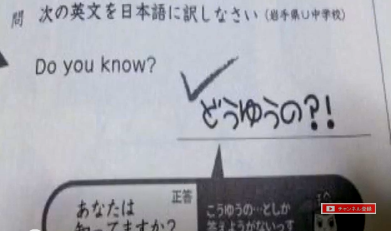 問 次の英文を日本語に訳しなさい（岩手県U中学校）
Do you know?
どうゆうの?!
正答
あなたは
知ってますか?
こうゆうの…としか
答えようがないっす
チャンネル登録